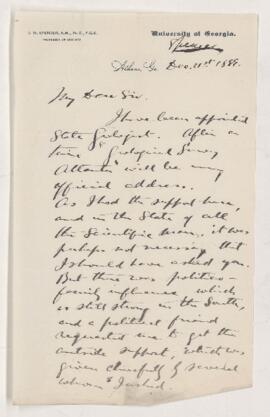 J. W. SPENCER, A.M., Ph.D., F.G.S.
PROFESSOR OF GEOLOGY
University of Georgia.
Spencer
Athens, Ga. Dec. 11th 1889.
My Dear Sir.
I have been appointed
State Geologist. After a
time "Geological Survey
Atlanta" will be my
official address.
As I had the support here,
and in the State of all
the Scientific men, it was
perhaps not necessary that
I should have asked you.
But there was politico-
family influence, which
is still strong in the South,
and a political friend
requested me to get the
outside support, which was
given cheerfully by several
whom I asked.